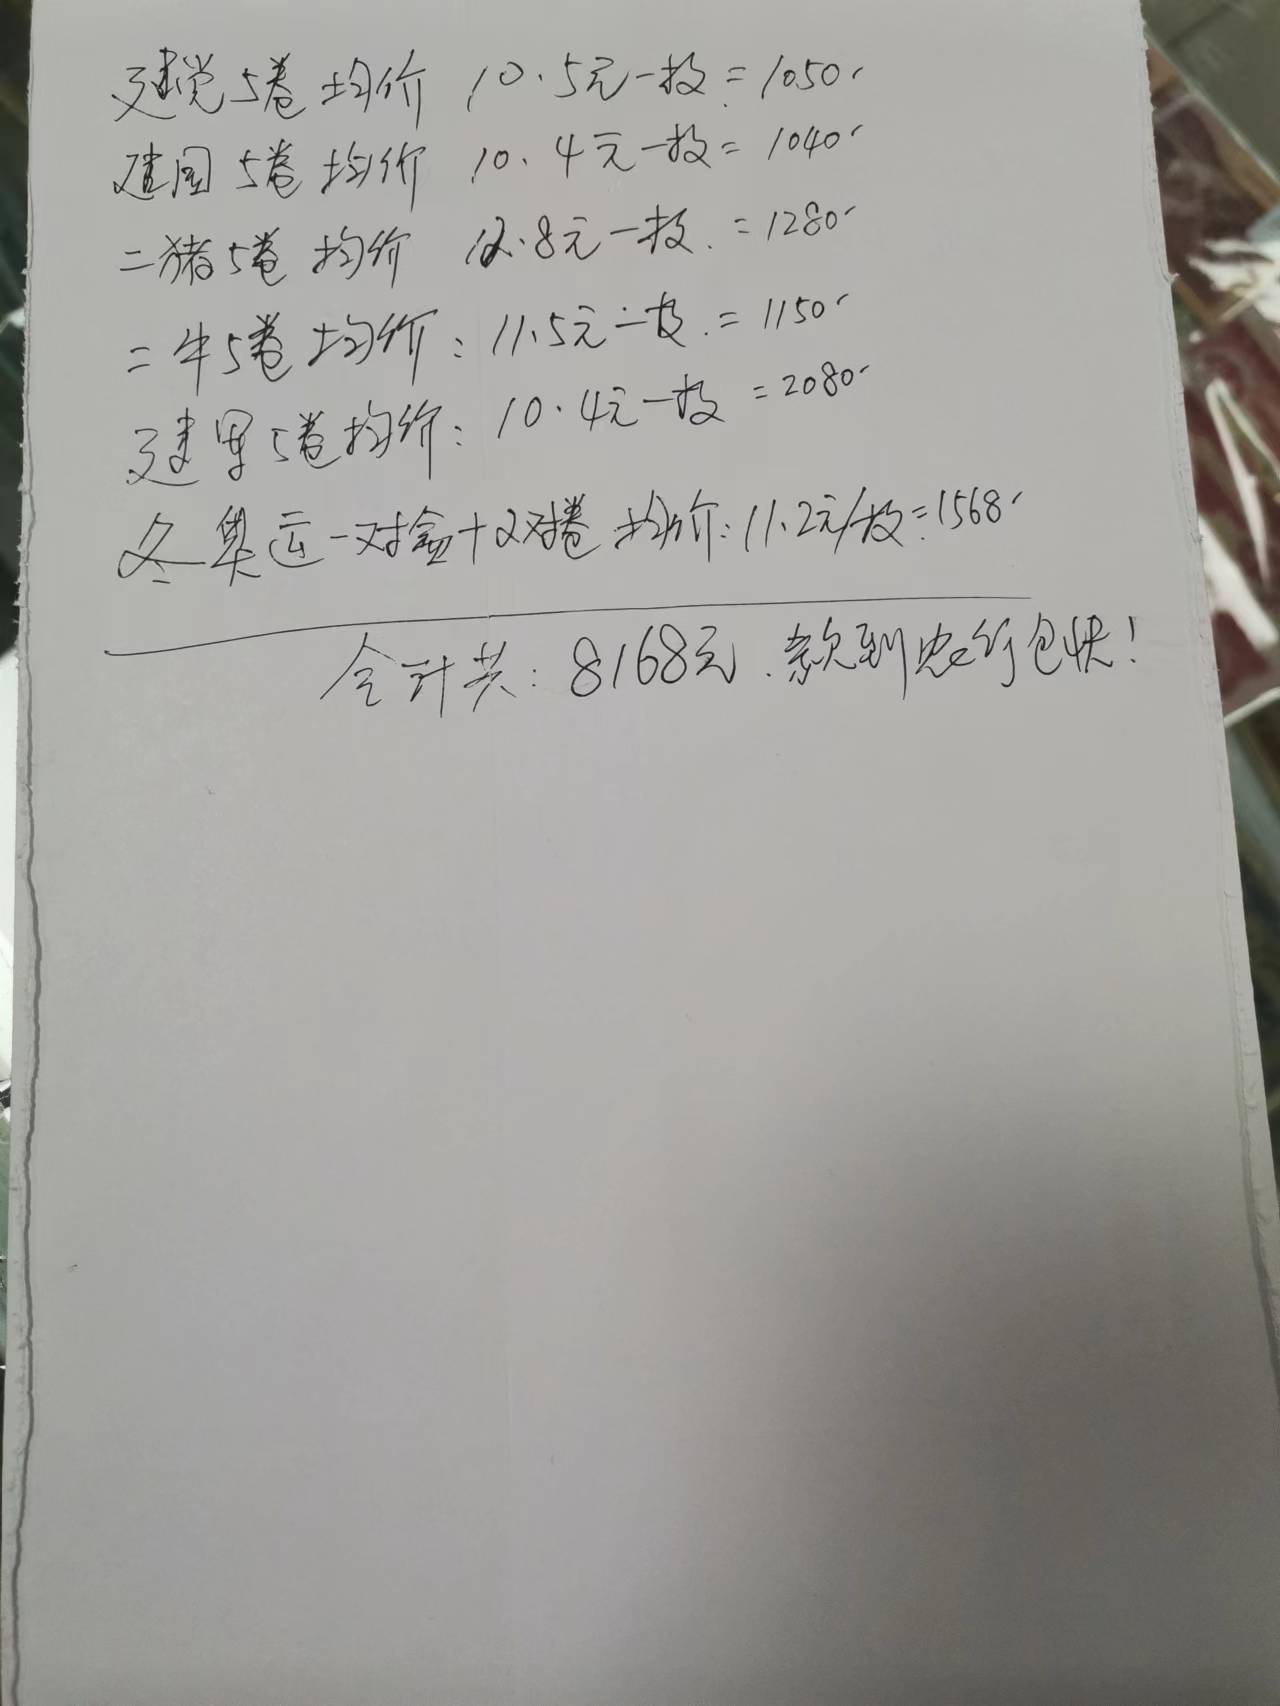 建党5卷均价 10.5元一枚=1050
建国5卷均价 10.4元一枚=1040
二猪5卷均价 12.8元一枚.=1280
二牛5卷均价:11.5元一枚.=1150
建军5卷均价:10.4元一枚=2080
冬奥运一对盒+2对卷均价:11.2元/枚=1568
合计共:8168元.款到农行包快!